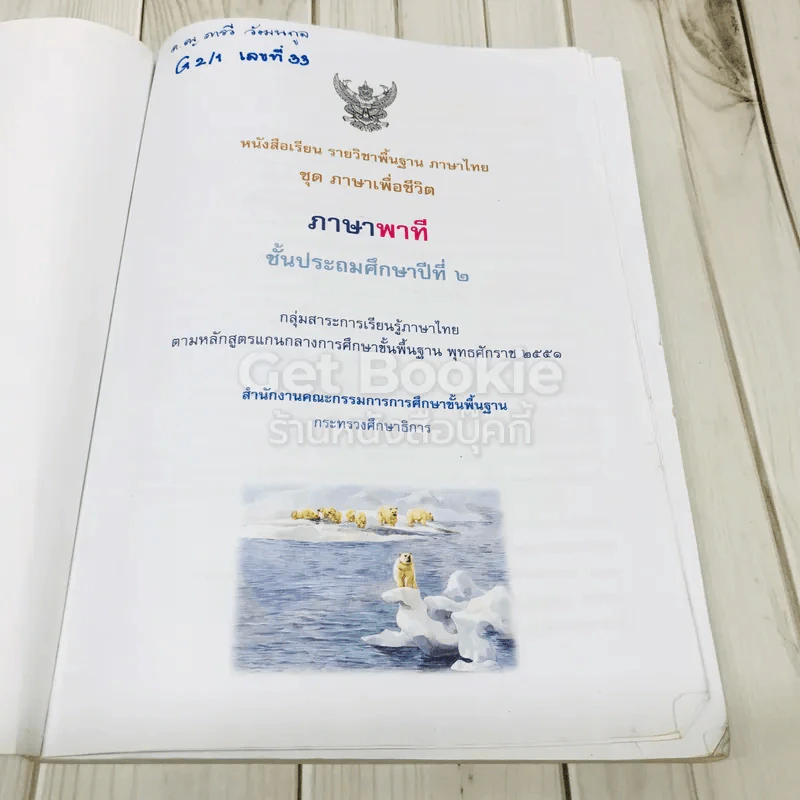 ด.ญ.
G 2/1 เลขที่ 33
หนังสือเรียน รายวิชาพื้นฐาน ภาษาไทย
ชุด ภาษาเพื่อชีวิต
ภาษาพาที
ชั้นประถมศึกษาปีที่ ๒
กลุ่มสาระการเรียนรู้ภาษาไทย
ตามหลักสูตรแกนกลางการศึกษาขั้นพื้นฐาน พุทธศักราช ๒๕๕๑
Get Bookie
สำนักงานคณะกรรมการการศึกษาขั้นพื้นฐาน
ร้านหนังสือบุ๊คกี้
กระทรวงศึกษาธิการ